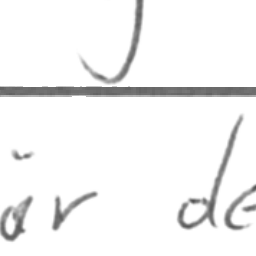 är de